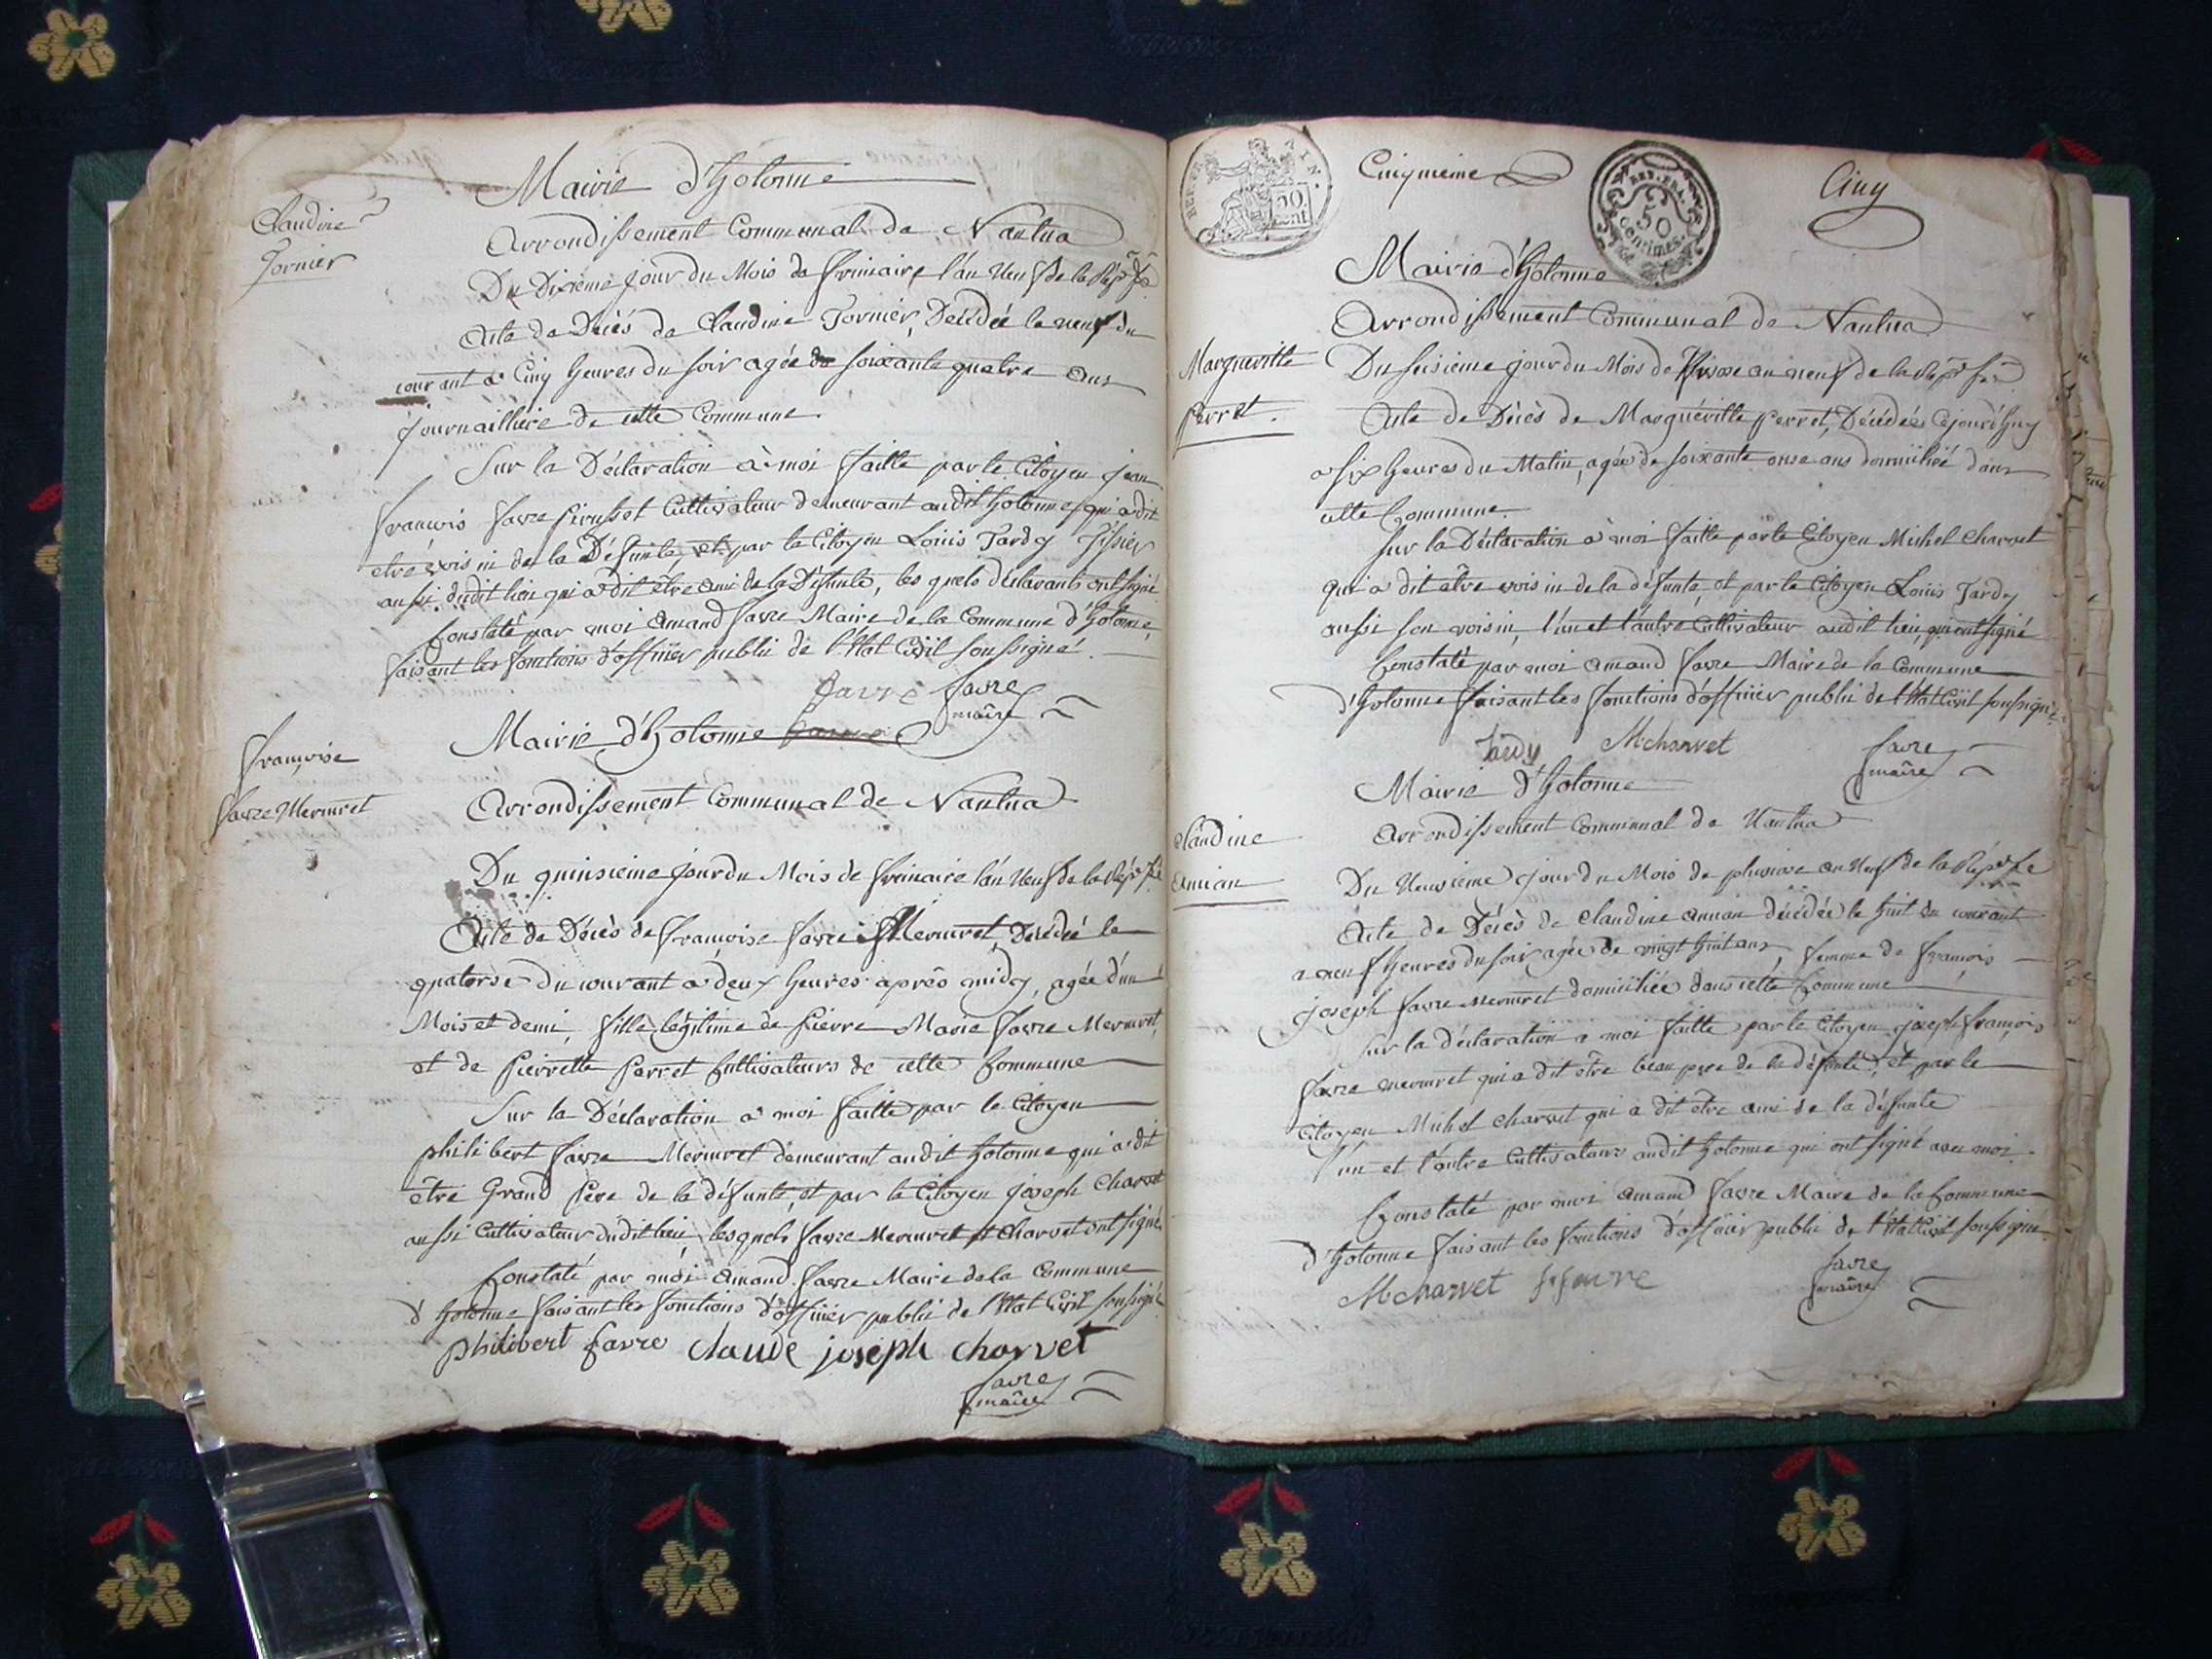 Claudine
Tornier
Mairie d'Hotonne
Arrondissement Communal de Nantua
Du Dixième jour du Mois de frimaire l'an Neuf de la Rép. fse
Acte de Décès de Claudine Tornier, Décédée le neuf du
courant à Cinq heures du soir agée de soixante quatre ans
journailliere de cette Commune.
Sur la Déclaration à moi faitte par le Citoyen jean
françois favre Pirusset Cultivateur demeurant audit hotonne, qui a dit
etre voisin de la Défunte, et par le Citoyen Louis Tardy Tissier
aussi dudit lieu qui a dit être ami de la Défunte, les quels déclarants ont signé
Constaté par moi Amand favre Maire de la Commune d'hotonne
faisant les fonctions d'officier public de l'Etat Civil soussigné.
favre favre
maire
françoise
favre Mermret
Mairie d'hotonne
Arrondissement Communal de Nantua
Du quinsieme jour du Mois de frimaire l'an Neuf de la Rép. fse
Acte de Décès de françoise favre Mermret, Décédée le
quatorse du courant à deux heures après midy, agée d'un
Mois et demi, fille légitime de Pierre Marie favre Mermret,
et de Pierrette Perret Cultivateurs de cette Commune
Sur la Déclaration à moi faitte par le Citoyen
philibert favre Mermret demeurant audit hotonne qui a dit
être Grand Père de la défunte, et par le Citoyen joseph Charvet
aussi Cultivateur dudit lieu, lesquels favre Mermret et Charvet ont signé
Constaté par moi Amand favre Maire de la Commune
d'hotonne faisant les fonctions d'officier public de l'Etat Civil soussigné
philibert favre claude joseph charvet
favre
maire
REP. FRA.
50
cent.
Cinqmeme
REP. FRA.
50
centimes
Cinq
Mairie d'hotonne
Arrondissement Communal de Nantua
Margueritte
Perret.
Du seisieme jour du Mois de Nivose an neuf de la Rép. fse
Acte de Décès de Margueritte Perret, Décédée Cejourd'huy
a six heures du Matin, agée de soixante onse ans domicilié dans
cette Commune.
Sur la Déclaration à moi faitte par le Citoyen Michel Charvet
qui a dit être voisin de la défunte, et par le Citoyen Louis Tardy
aussi son voisin, l'un et l'autre Cultivateur audit lieu, qui ont signé
Constaté par moi Amand favre Maire de la Commune
d'hotonne faisant les fonctions d'officier public de l'Etat Civil soussigné
Tardy Mcharvet favre
maire
Mairie d'hotonne
Claudine
Amian
Arrondissement Communal de Nantua
Du Neuvieme jour du Mois de pluviose an Neuf de la Rép. fse
Acte de Décès de Claudine Amian décédée le huit du courant
a neuf heures du soir agée de vingt huit ans, femme de françois
joseph favre Mermret domiciliée dans cette Commune
Sur la déclaration a moi faitte par le Citoyen joseph françois
favre Mermret qui a dit être beau pere de la défunte, et par le
Citoyen Michel Charvet qui a dit être ami de la défunte
l'un et l'autre Cultivateurs audit hotonne qui ont signé avec moi.
Constaté par moi Amand favre Maire de la Commune
d'hotonne faisant les fonctions d'officier public de l'Etat Civil soussigné
Mcharvet favre favre
maire